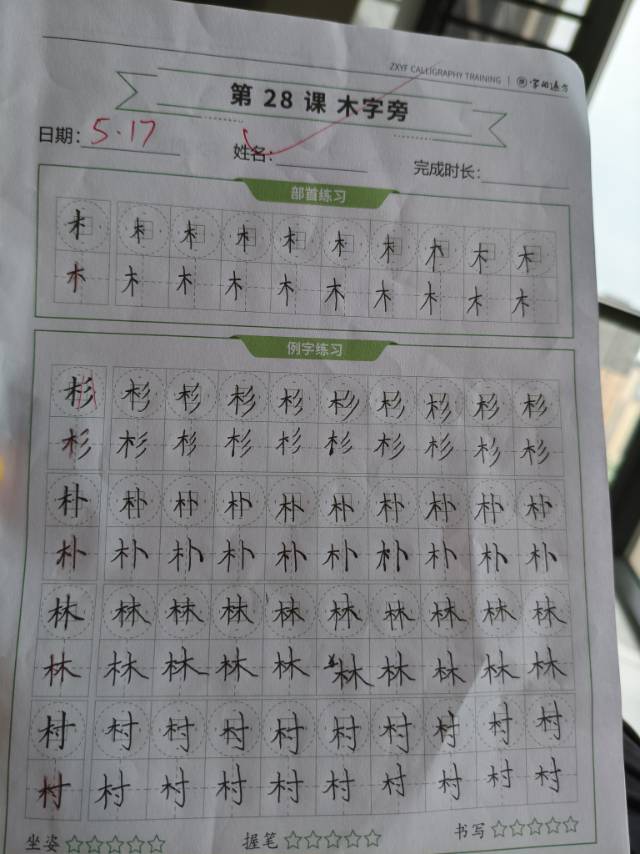 ZXYF CALLIGRAPHY TRAINING
第 28 课 木字旁
日期: 5.17 姓名: 完成时长:
部首练习
木 木 木 木 木 木 木 木 木 木
木 木 木 木 木 木 木 木 木 木
例字练习
杉 杉 杉 杉 杉 杉 杉 杉 杉 杉
杉 杉 杉 杉 杉 杉 杉 杉 杉 杉
朴 朴 朴 朴 朴 朴 朴 朴 朴 朴
朴 朴 朴 朴 朴 朴 朴 朴 朴 朴
林 林 林 林 林 林 林 林 林 林
林 林 林 林 林 林 林 林 林 林
村 村 村 村 村 村 村 村 村 村
村 村 村 村 村 村 村 村 村 村
坐姿 握笔 书写